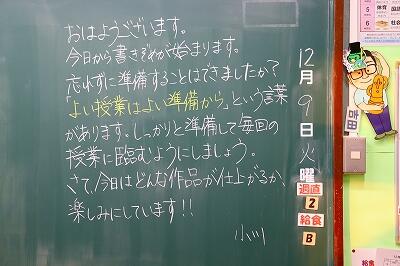 おはようございます。
今日から書きぞめが始まります。
忘れずに準備することはできましたか？
「よい授業はよい準備から」という言葉
があります。しっかりと準備して毎回の
授業に臨むようにしましょう。
さて、今日はどんな作品が仕上がるか、
楽しみにしています!!
小川
12月9日火曜
週直
2
給食
B
吉田
5
体育
国語
6
社会
給食